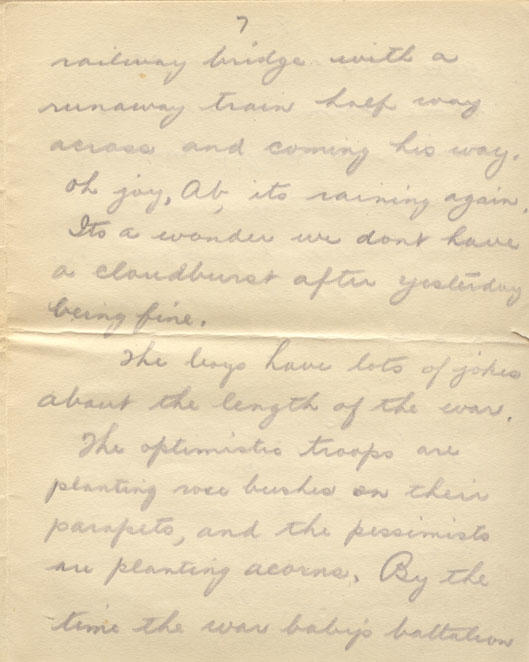 7
railway bridge with a
runaway train half way
across and coming his way.
Oh joy, Ab, its raining again.
Its a wonder we dont have
a cloudburst after yesterday
being fine.
The boys have lots of jokes
about the length of the war.
The optimistic troops are
planting rose bushes on their
parapets, and the pessimists
are planting acorns. By the
time the war baby's battalion